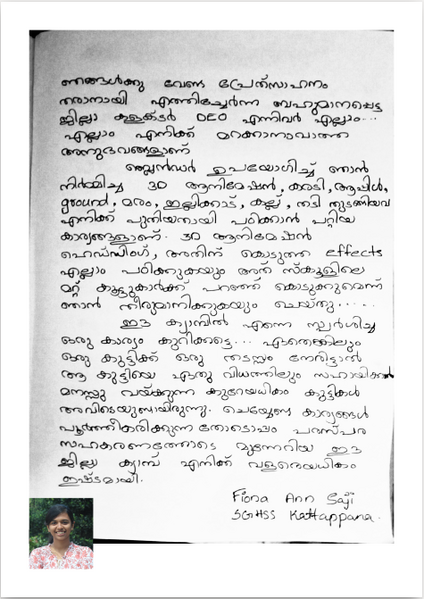 ഞങ്ങൾക്കു വേണ്ട പ്രോത്സാഹനം
തരാനായി എത്തിച്ചേർന്ന ബഹുമാനപ്പെട്ട
ജില്ലാ കളക്ടർ DEO എന്നിവർ എല്ലാം...
എല്ലാം എനിക്ക് മറക്കാനാവാത്ത
അനുഭവങ്ങളാണ്.
ബ്ലെൻഡർ ഉപയോഗിച്ച് ഞാൻ
നിർമ്മിച്ച 3D ആനിമേഷൻ, കരടി, ആപ്പിൾ,
ground, മരം, ഇല്ലിക്കാട്, കല്ല്, തടി തുടങ്ങിയവ
എനിക്ക് പുതിയതായി പഠിക്കാൻ പറ്റിയ
കാര്യങ്ങളാണ്. 3D ആനിമേഷൻ
ഹെഡ്ഡിംഗ്, അതിന് കൊടുത്ത effects
എല്ലാം പഠിക്കുകയും അത് സ്കൂളിലെ
മറ്റ് കൂട്ടുകാർക്ക് പറഞ്ഞ് കൊടുക്കുമെന്ന്
ഞാൻ തീരുമാനിക്കുകയും ചെയ്തു......
ഈ ക്യാമ്പിൽ എന്നെ സ്പർശിച്ച
ഒരു കാര്യം കുറിക്കട്ടെ... ഏതെങ്കിലും
ഒരു കുട്ടിക്ക് ഒരു തടസ്സം നേരിട്ടാൽ
ആ കുട്ടിയെ ഏതു വിധത്തിലും സഹായിക്കാൻ
മനസ്സു വയ്ക്കുന്ന കുറേയധികം കുട്ടികൾ
അവിടെയുണ്ടായിരുന്നു. ചെയ്യേണ്ട കാര്യങ്ങൾ
പൂർത്തീകരിക്കുന്നതോടൊപ്പം പരസ്പര
സഹകരണത്തോടെ മുന്നേറിയ ഈ
ജില്ലാ ക്യാമ്പ് എനിക്ക് വളരെയധികം
ഇഷ്ടമായി.
Fiona Ann Saji
SGHSS Kattappana.